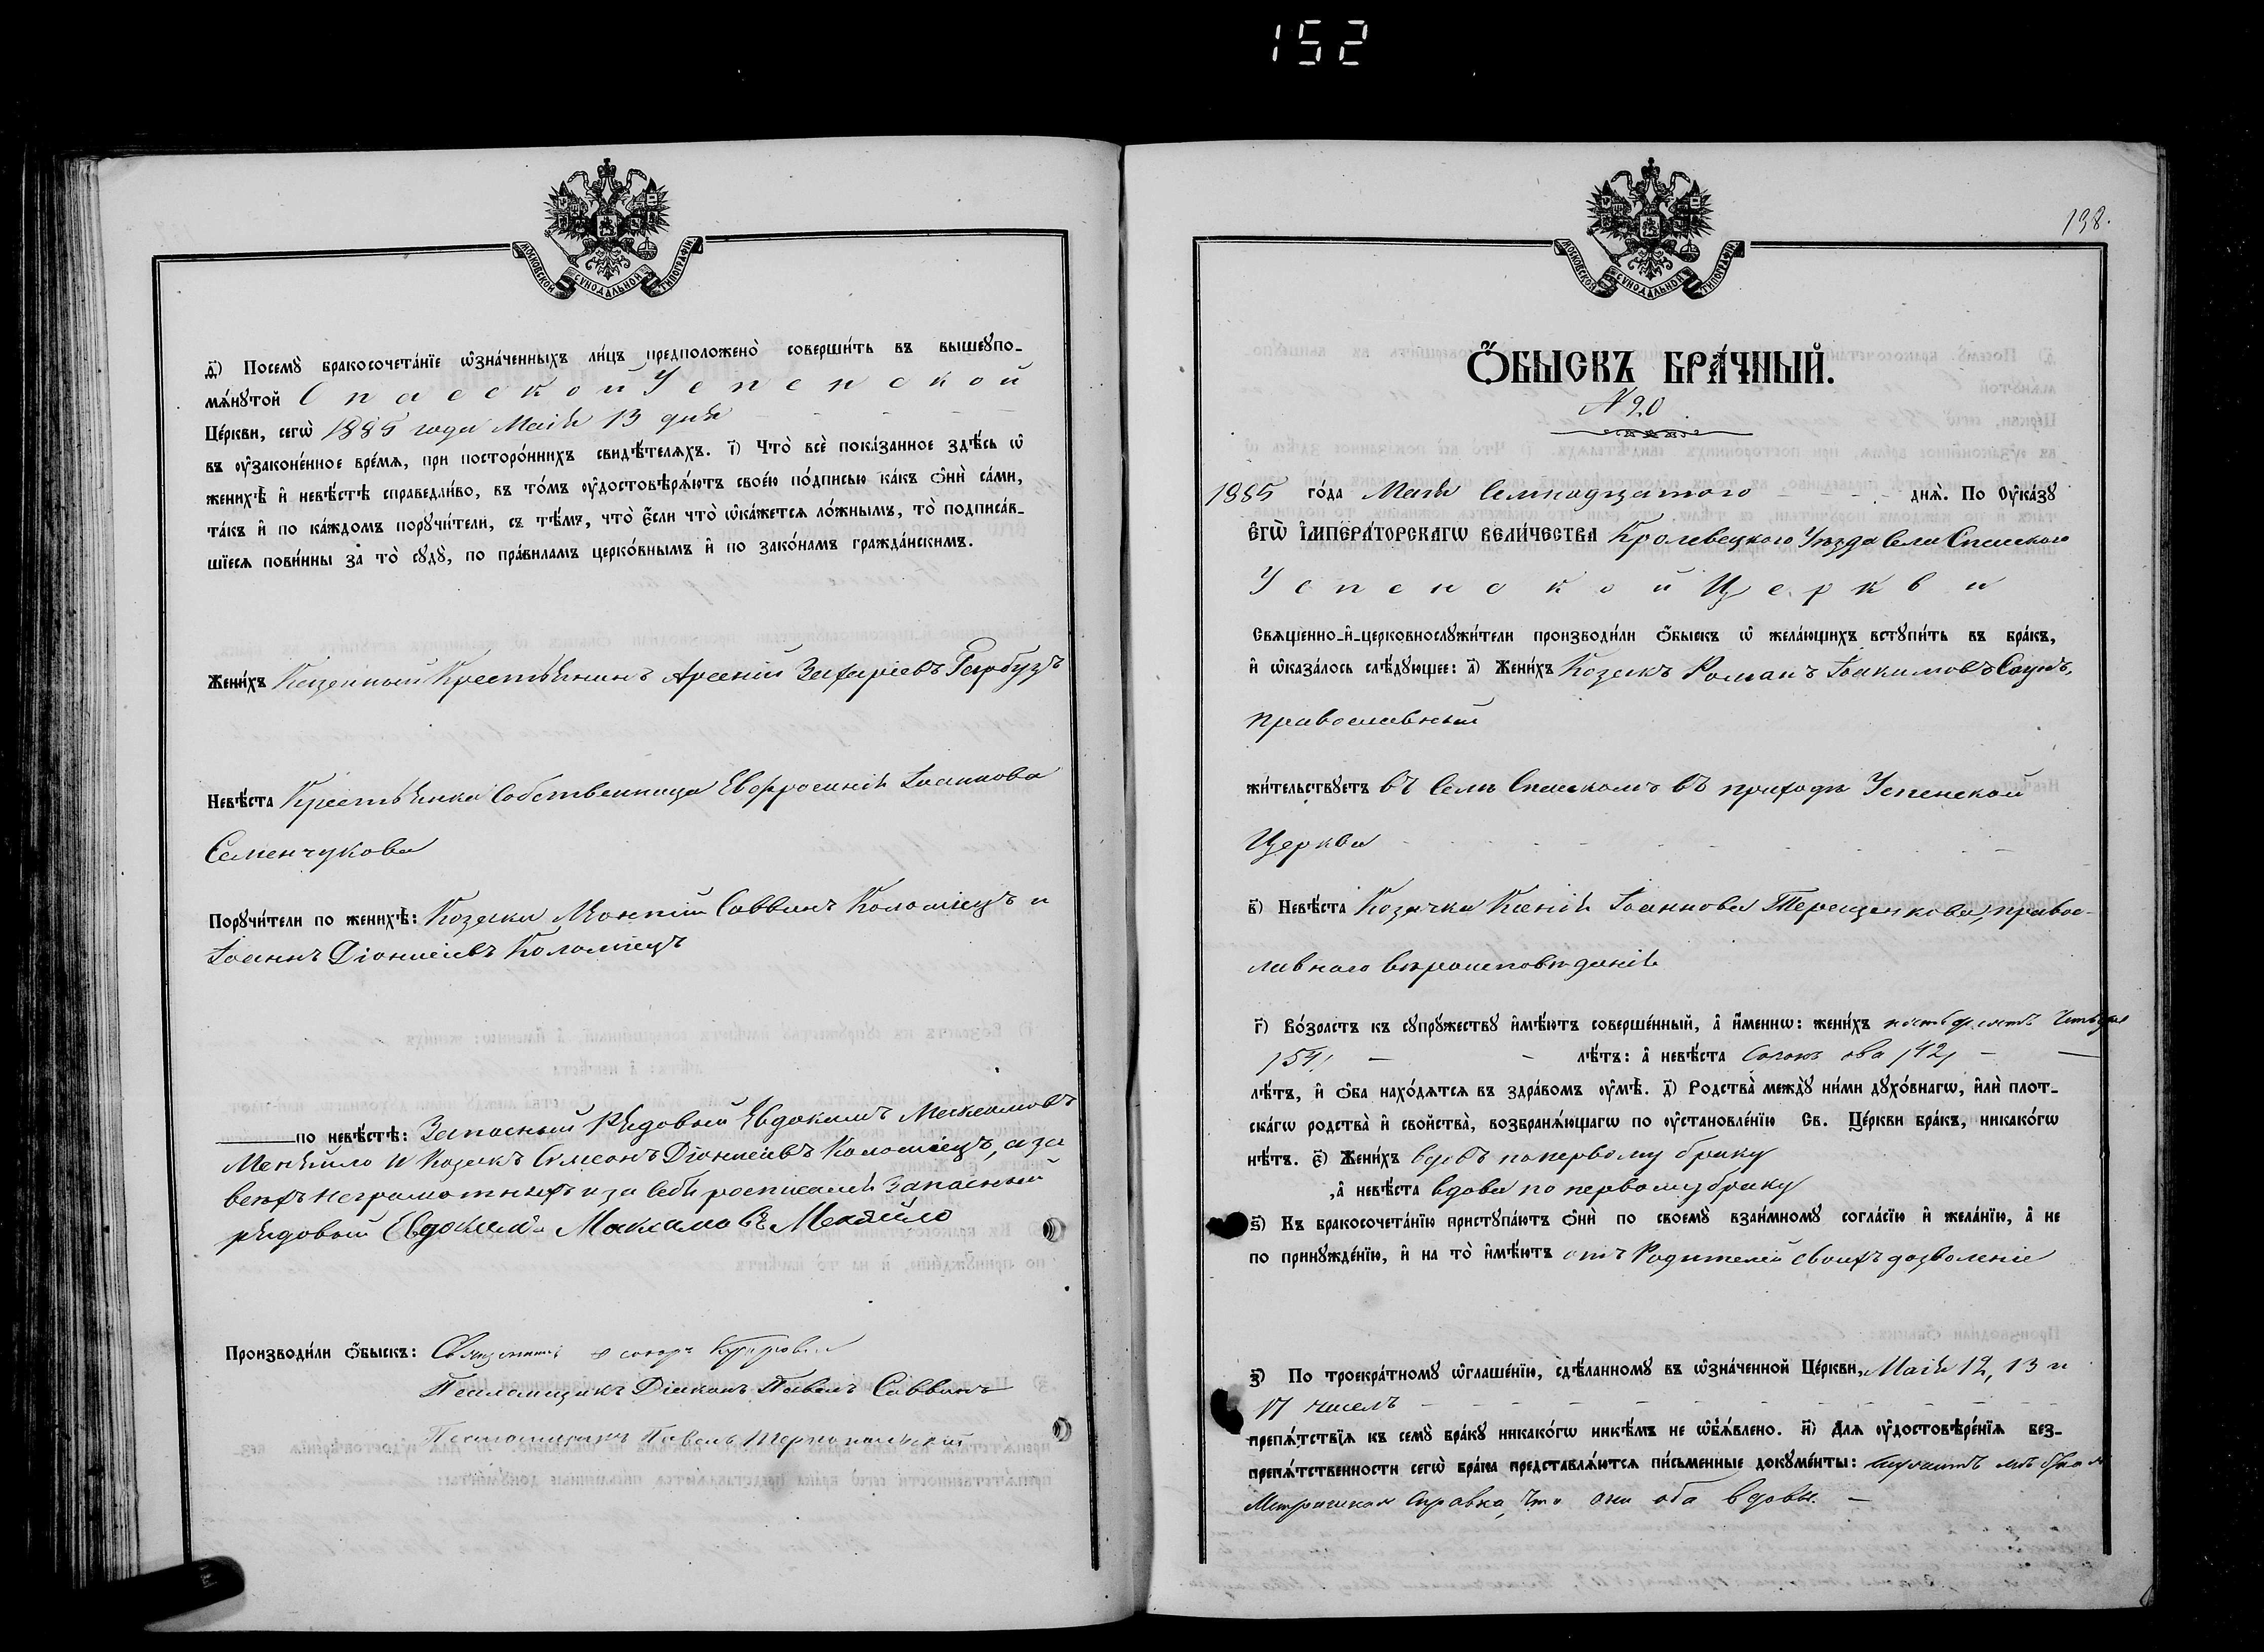 152
МОСКОВСКОЙ СѴНОДАЛЬНОЙ ТИПОГРАФІИ
д҃) Посемꙋ̀ бракосочета́нїе ѡ҆зна́ченныхъ ли́цъ предположено̀ соверши́ть въ вышеꙋпо-
мѧ́нꙋтой Спасской Успенской
Це́ркви, сегѡ̀ 1885 года Маія 13 дня
въ ᲂу҆законе́нное вре́мѧ, при посторо́ннихъ свидѣ́телѧхъ. і҃) Что̀ всѐ пока́занное здѣ́сь ѡ҆
женихѣ̀ и҆ невѣ́стѣ справедли́во, въ то́мъ ᲂу҆достовѣрѧ́ютъ свое́ю по́дписью ка́къ ѻ҆нѝ са́ми,
та́къ и҆ по ка́ждомъ порꙋчи́тели, съ тѣ́мъ, что̀ є҆́сли что̀ ѡ҆ка́жетсѧ ло́жнымъ, то̀ подписа́в-
шїесѧ пови́нны за то̀ сꙋдꙋ̀, по пра́виламъ церко́внымъ и҆ по зако́намъ гражда́нскимъ.
Жени́хъ Казенный Крестьянинъ Арсеній Захаріевъ Гарбузъ
Невѣ́ста Крестьянка Собственница Евфросинія Іоаннова
Семенчукова
Порꙋчи́тели по женихѣ̀: Козаки Леонтій Саввинъ Коломіецъ и
Іоаннъ Діонисіевъ Коломіецъ
по невѣ́стѣ: Запасный Рядовый Евдокимъ Максимовъ
Меняйло и Козакъ Симеонъ Діонисіевъ Коломіецъ, а за
всѣхъ неграмотныхъ и за себя росписался Запасный
рядовый Евдокимъ Максимовъ Меняйло
Производи́ли ѻ҆́быскъ: Священникъ
Псаломщикъ Діаконъ Павелъ Саввинъ
Псаломщикъ Павелъ
138.
МОСКОВСКОЙ СѴНОДАЛЬНОЙ ТИПОГРАФІИ
Ѻ҆́БЫСКЪ БРА́ЧНЫЙ.
№ 20
1885 го́да Маія Семнадцатого днѧ̀. По ᲂу҆ка́зꙋ
Є҆ГѠ̀ И҆МПЕРА́ТОРСКАГѠ ВЕЛИ́ЧЕСТВА Кролевецкого Уѣзда Села Спаскаго
Успенской Церкви
Свѧще́нно-и҆-церковнослꙋжи́тели производи́ли ѻ҆́быскъ ѡ҆ жела́ющихъ встꙋпи́ть въ бра́къ,
и҆ ѡ҆каза́лось слѣ́дꙋющее: а҃) Жени́хъ Козакъ Романъ Іоакимовъ Саунъ,
православный
жи́тельствꙋетъ въ Селѣ Спаскомъ въ приходѣ Успенской
Церкви
в҃) Невѣ́ста Козачка Ксенія Іоаннова Терещенкова, правос-
лавного вѣроисповѣданія
г҃) Во́зрастъ къ сꙋпрꙋ́жествꙋ и҆мѣ́ютъ соверше́нный, а҆ и҆́меннѡ: жени́хъ пятьдесятъ четыре
/54/ лѣ́тъ: а҆ невѣ́ста сорокъ два /42/
лѣ́тъ, и҆ ѻ҆́ба нахо́дѧтсѧ въ здра́вомъ ᲂу҆мѣ̀. д҃) Родства̀ междꙋ̀ ни́ми дꙋхо́внагѡ, и҆лѝ плот-
ска́гѡ родства̀ и҆ свойства̀, возбранѧ́ющагѡ по ᲂу҆становле́нїю Св. Це́ркви бра́къ, никако́гѡ
нѣ́тъ. є҃) Жени́хъ вдовъ по первому браку
, а҆ невѣ́ста вдова по первому браку
ѕ҃) Къ бракосочета́нїю пристꙋпа́ютъ ѻ҆нѝ по своемꙋ̀ взаи́мномꙋ согла́сїю и҆ жела́нїю, а҆ не
по принꙋжде́нїю, и҆ на то̀ и҆мѣ́ютъ отъ Родителей своихъ дозволеніе
з҃) По троекра́тномꙋ ѡ҆глаше́нїю, сдѣ́ланномꙋ въ ѡ҆зна́ченной Це́ркви, Маія 12, 13 и
17 чиселъ
препѧ́тствїѧ къ семꙋ̀ бра́кꙋ никако́гѡ никѣ́мъ не ѡ҆б̾ѧ́влено. и҃) Длѧ ᲂу҆достовѣре́нїѧ без-
препѧ́тственности сегѡ̀ бра́ка представлѧ́ютсѧ пи́сьменные докꙋме́нты:
Метрическая справка, что они оба вдовы.